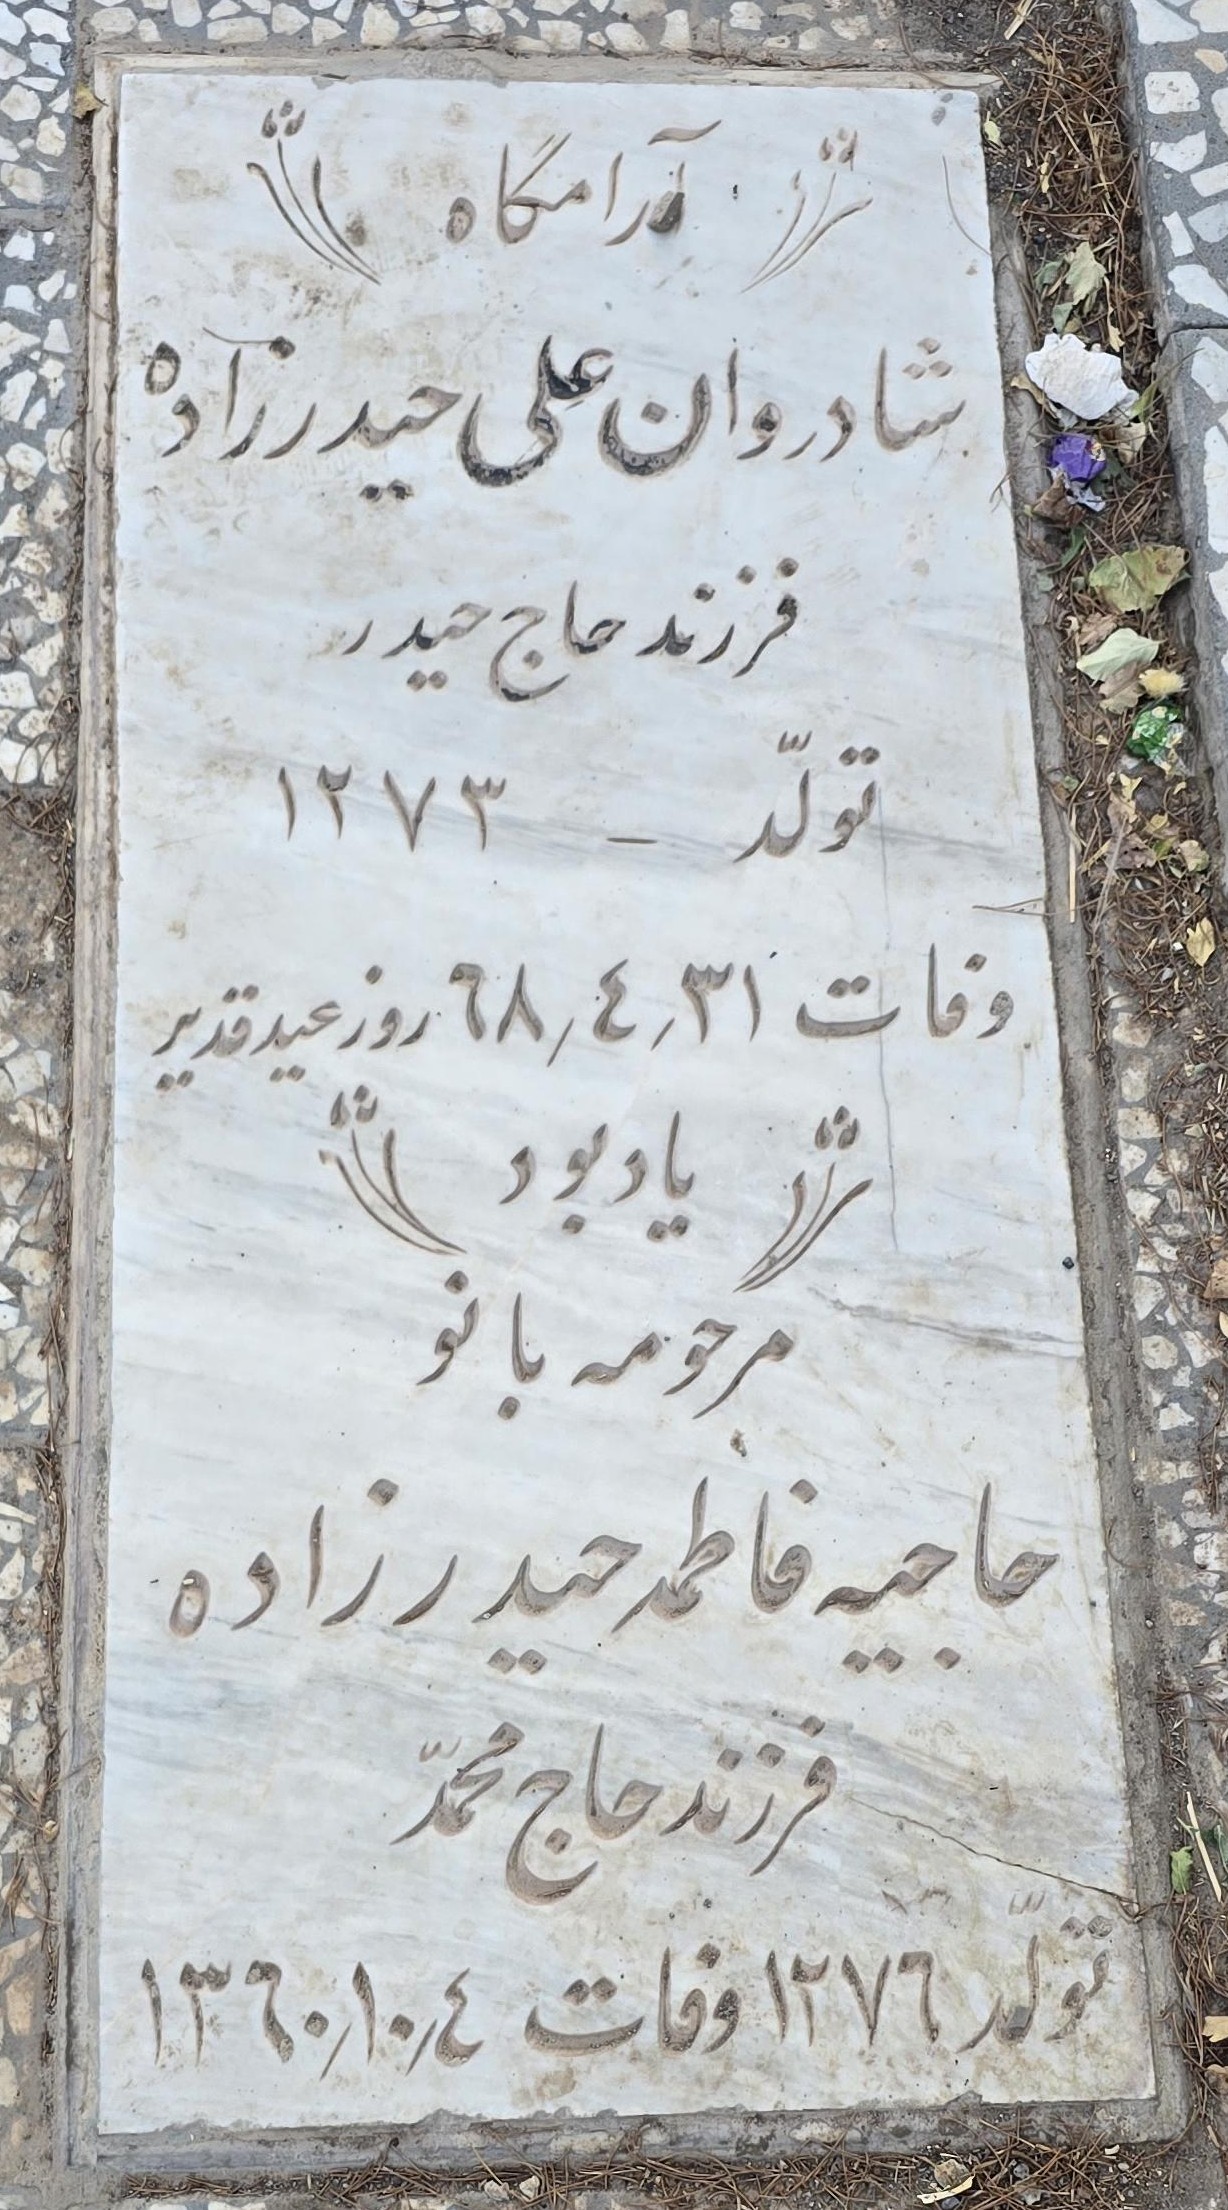 آرامگاه
شادروان علی حیدرزاده
فرزند حاج حیدر
تولّد - ۱۲۷۳
وفات ۳۱/٤/٦۸ روز عید قدیر
یادبود
مرحومه بانو
حاجیه فاطمه حیدرزاده
فرزند حاج محمّد
تولّد ۱۲۷٦ وفات ٤/۱۰/۱۳٦۰